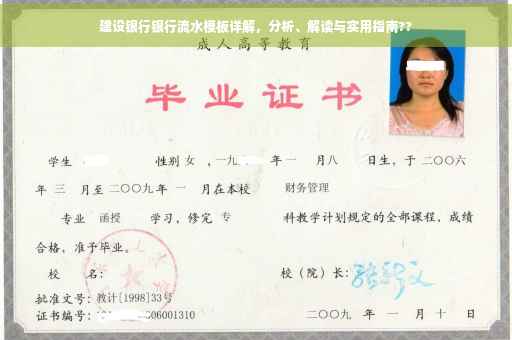 建设银行银行流水模板详解，分析、解读与实用指南??
成人高等教育
毕业证书
学生 性别 女 ，一九 年 一 月八 日生，于 二〇〇六
年 三 月至 二〇〇九 年 一 月在本校 财务管理
专业 函授 学习，修完 专 科教学计划规定的全部课程，成绩
合格，准予毕业。
校 名： 校（院）长：
批准文号：教计[1998]33号
证书编号： 06001310 二〇〇九 年 一 月 十 日